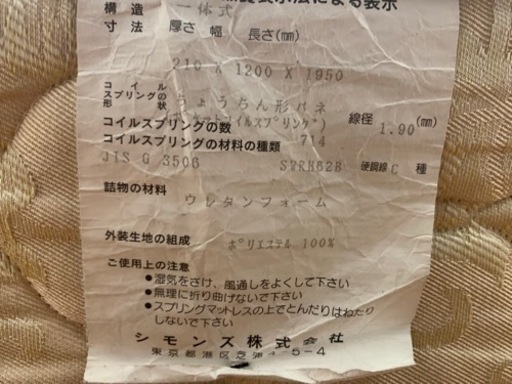 表示法による表示
構造 一体式
寸法 厚さ 幅 長さ(mm)
210 X 1200 X 1950
コイルスプリングの形状 ちょうちん形バネ
線径 1.90(mm)
コイルスプリングの数 714
コイルスプリングの材料の種類
JIS G 3506 SWRH62B 硬鋼線 C 種
詰物の材料
ウレタンフォーム
外装生地の組成
ポリエステル 100%
ご使用上の注意
●湿気をさけ、風通しをよくして下さい
●無理に折り曲げないで下さい
●スプリングマットレスの上でとんだりはねたり
しないで下さい
シモンズ株式会社
東京都港区芝浦 -5-4